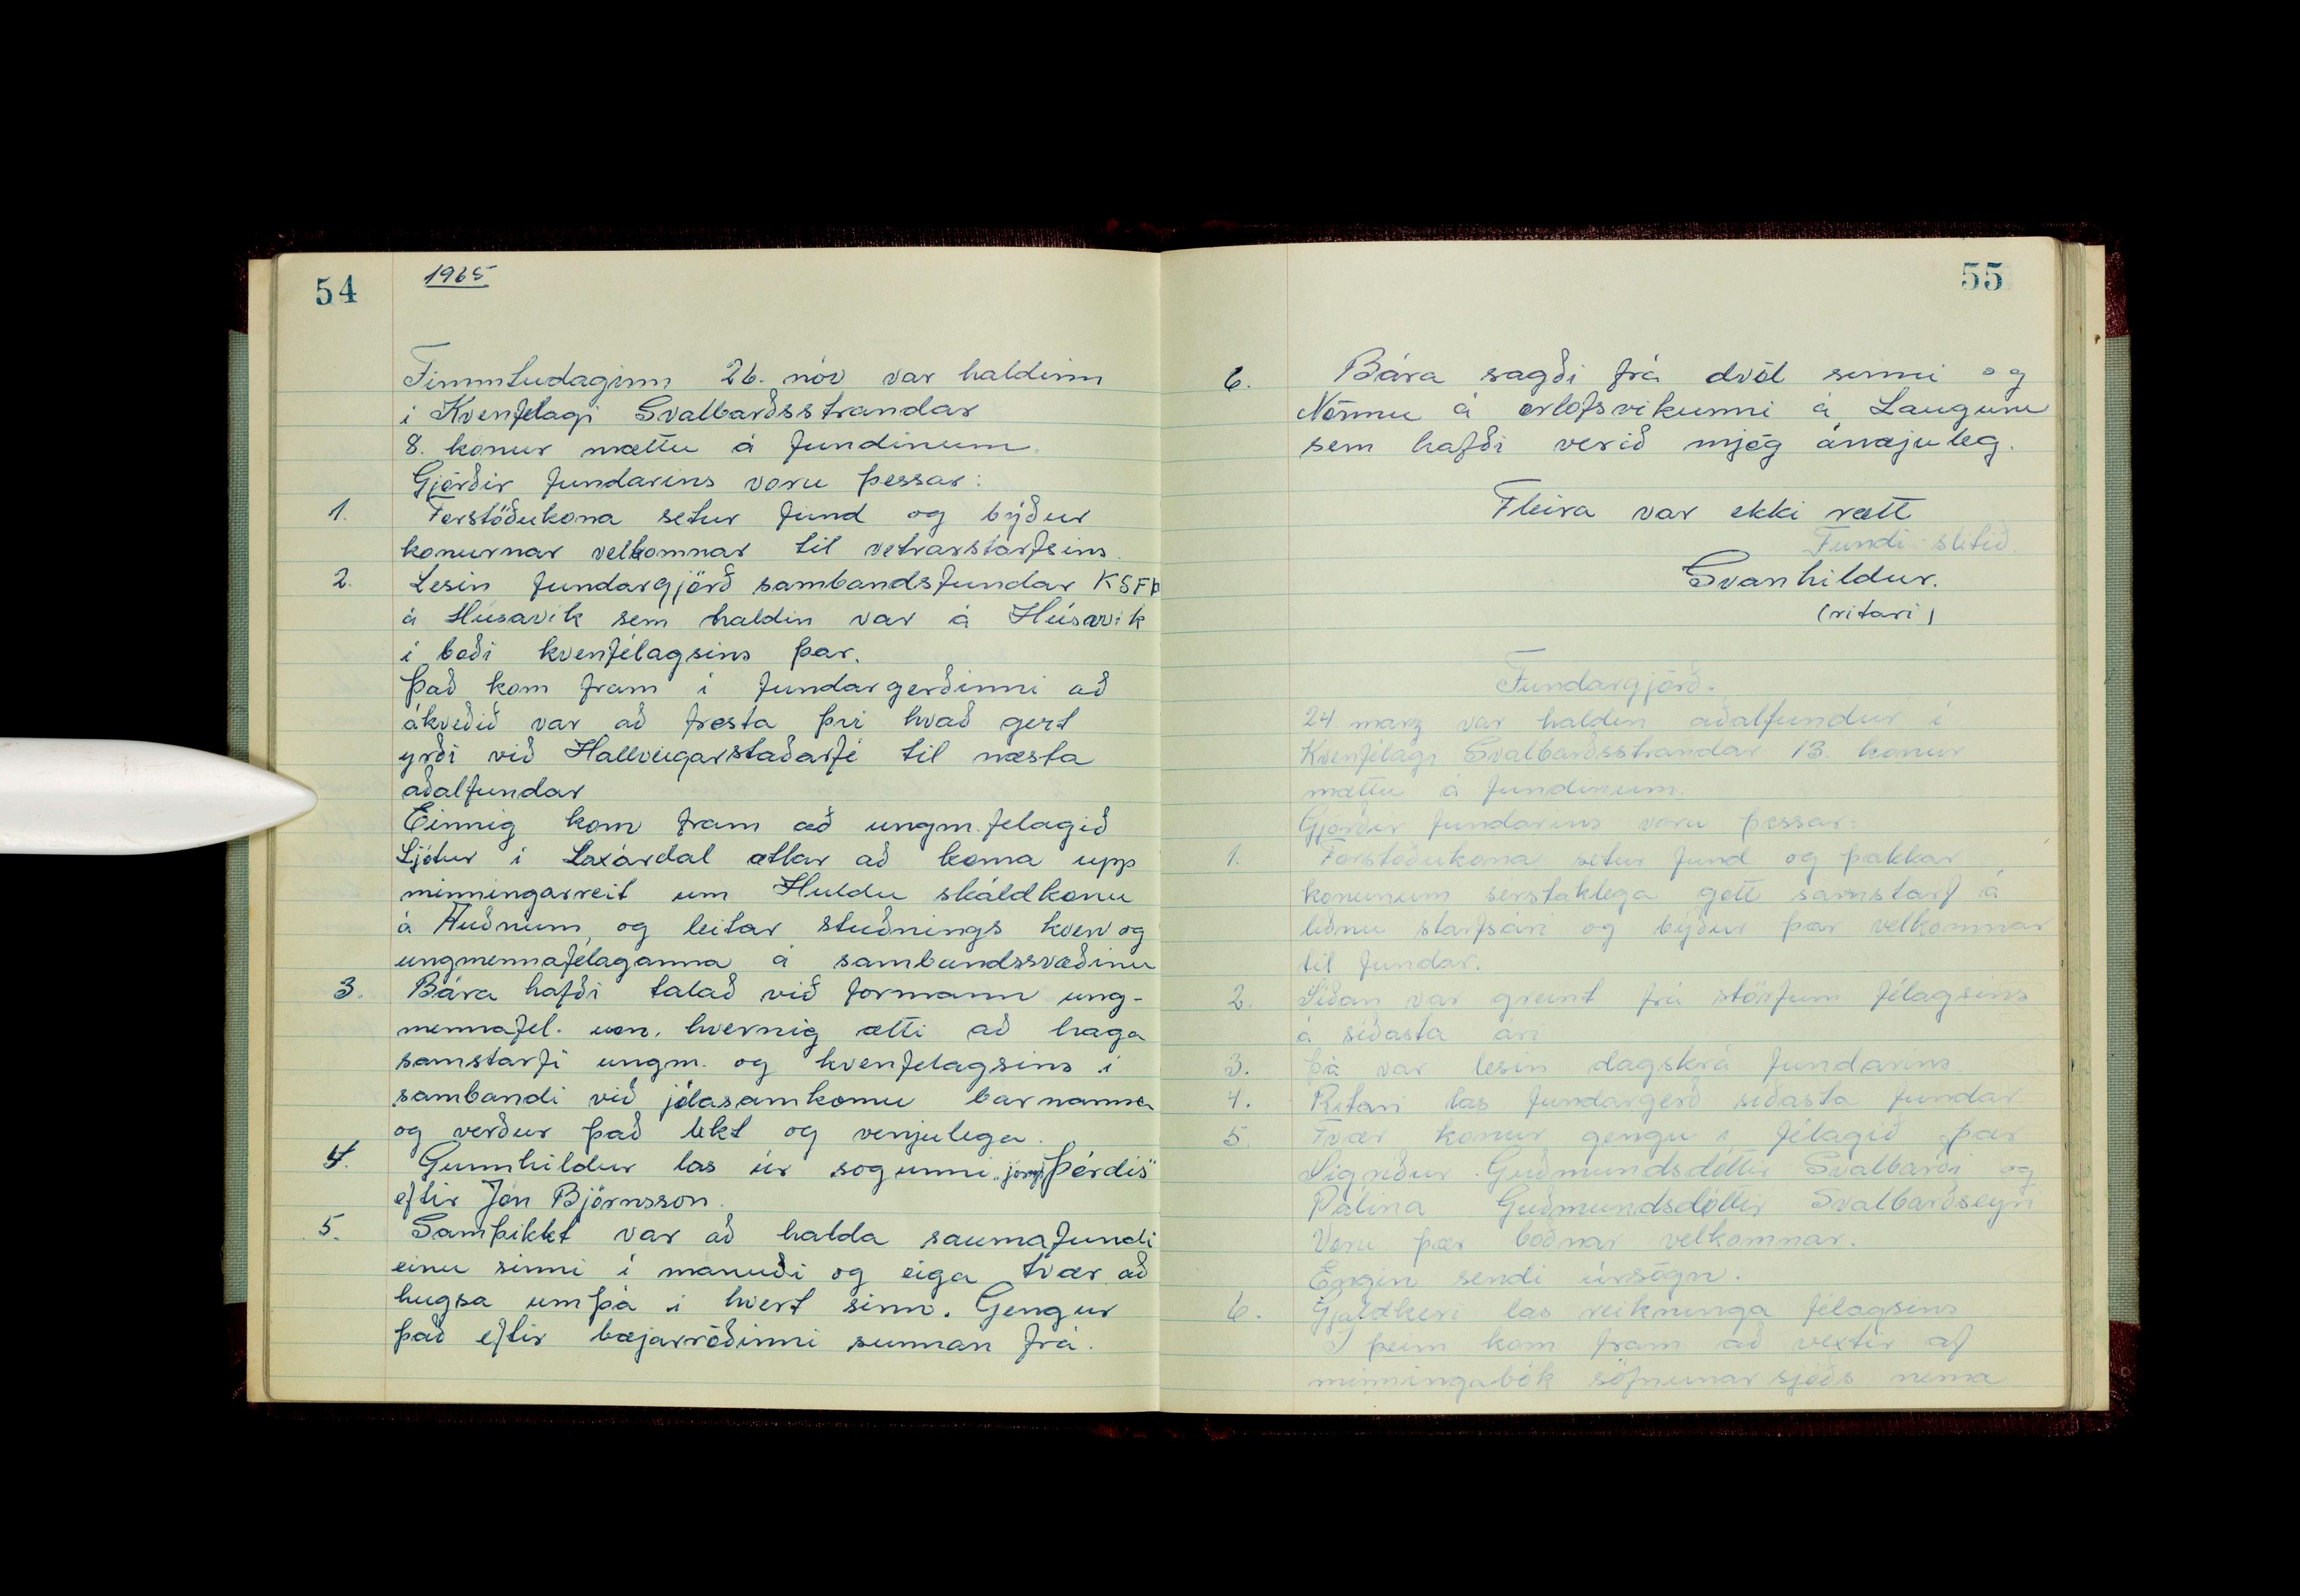 54
1965
Fimmtudaginn 26. nóv var haldinn
i Kvenfelagi Svalbarðsstrandar
8. konur mættu á fundinum.
Gjörðir fundarins voru þessar:
1. Forstöðukona setur fund og býður
konurnar velkomnar til vetrarstarfsins.
2. Lesin fundargjörð sambandsfundar KSFÞ
á Húsavik sem haldin var á Húsavik
i boði kvenfélagsins þar.
Það kom fram i fundargerðinni að
ákveðið var að fresta þvi hvað gert
yrði við Hallveigarstaðarfé til næsta
aðalfundar
Einnig kom fram að ungm.felagið
Ljótur i Laxárdal ætlar að koma upp
minningarreit um Huldu skáldkonu
á Auðnum, og leitar stuðnings kven og
ungmennafélaganna á sambandssvæðinu
3. Bára hafði talað við formann ung-
mennafel. um, hvernig ætti að haga
samstarfi ungm. og kvenfelagsins i
sambandi við jólasamkomu barnanna
og verður það likt og venjulega.
4. Gunnhildur las úr sogunni „jomfr Þórdís"
eftir Jón Björnsson.
5. Samþikkt var að halda saumafundi
einu sinni i mánuði og eiga tvær að
hugsa um þá i hvert sinn. Gengur
það eftir bæjarröðinni sunnan frá.
55
6. Bára sagði frá dvöl sinni og
Nönnu á orlofsvikunni á Laugum
sem hafði verið mjög ánæjuleg.
Fleira var ekki rætt
Fundi slitið.
Svanhildur.
(ritari)
Fundargjörð.
24 marz var haldin aðalfundur i
Kvenfélagi Svalbarðsstrandar 13. konur
mættu á fundinum.
Gjörðir fundarins voru þessar:
1. Forstöðukona setur fund og þakkar
konunum serstaklega gott samstarf á
liðnu starfsári og býður þær velkomnar
til fundar.
2. Siðan var greint frá störfum félagsins
á siðasta ári
3. Þá var lesin dagskrá fundarins
4. Ritari las fundargerð siðasta fundar
5. Tvær konur gengu i félagið þær
Sigriður Guðmundsdóttir Svalbarði og
Pálina Guðmundsdóttir Svalbarðseyri
Voru þær boðnar velkomnar.
Engin sendi úrsögn.
6. Gjaldkeri las reikninga félagsins
I þeim kom fram að vextir af
minningabók söfnunar sjóðs nema